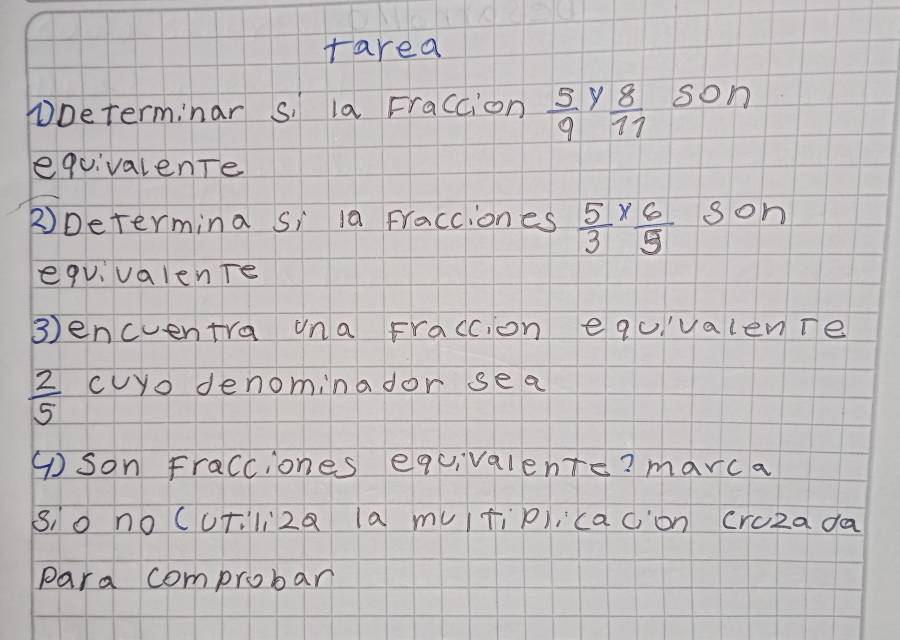 tarea
1) Determinar si la Fraccion 5/9 y 8/11 son
equivalente
2) Determina si la Fracciones 5/3 y 6/5 son
equivalente
3) encuentra una Fraccion equivalente
2/5 cuyo denominador sea
4) son Fracciones equivalente? marca
si o no (utiliza la multiplicacion cruzada
para comprobar